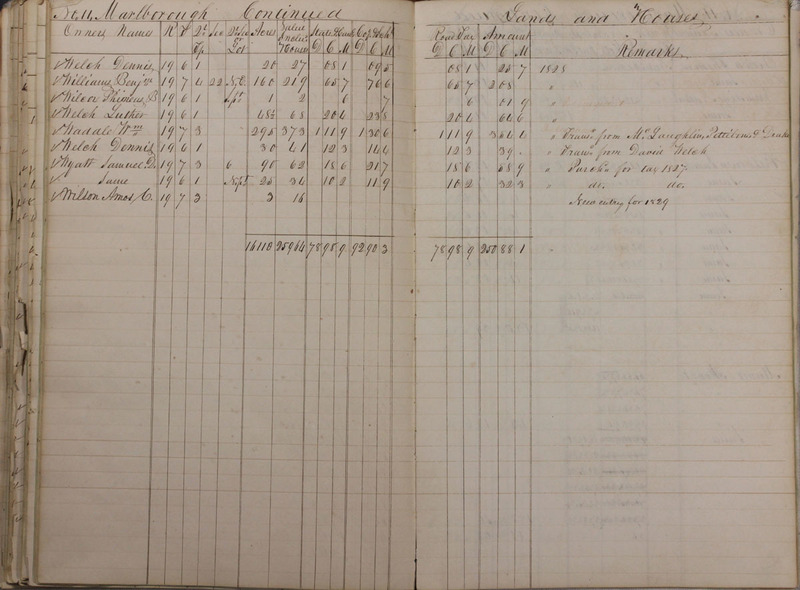 New Marlborough Continued Lands and Houses
Owners Names R T Sec Acres Value State & Canal Co. & School Road Tax Amount Remarks
D C M D C M D C M D C M
Welch Dennis 19 6 1 20 27 08 1 09 5 08 1 25 7 1828
Williams Benjn 19 7 4 22 160 219 65 7 76 6 65 7 2 08 "
Wilcox Shipman B 19 6 1 1 2 6 7 6 01 9 "
Welch Luther 19 6 1 48½ 68 20 4 23 8 20 4 64 6 "
Waddle Wm 19 7 3 295 373 1 11 9 1 30 6 1 11 9 3 54 4 " Trans. from McLaughlin, Pettibone & Drake
Welch Dennis 19 6 1 30 41 12 3 14 4 12 3 39 " Trans from David Welch
Wyatt Samuel D. 19 7 3 6 90 62 18 6 21 7 18 6 58 9 " Purchs for tax 1827
Same 19 6 1 25 34 10 2 11 9 10 2 32 3 " do. do.
Wilson Amos C. 19 7 3 3 15 New entry for 1829
16110 25964 78 98 9 92 90 3 78 98 9 250 88 1